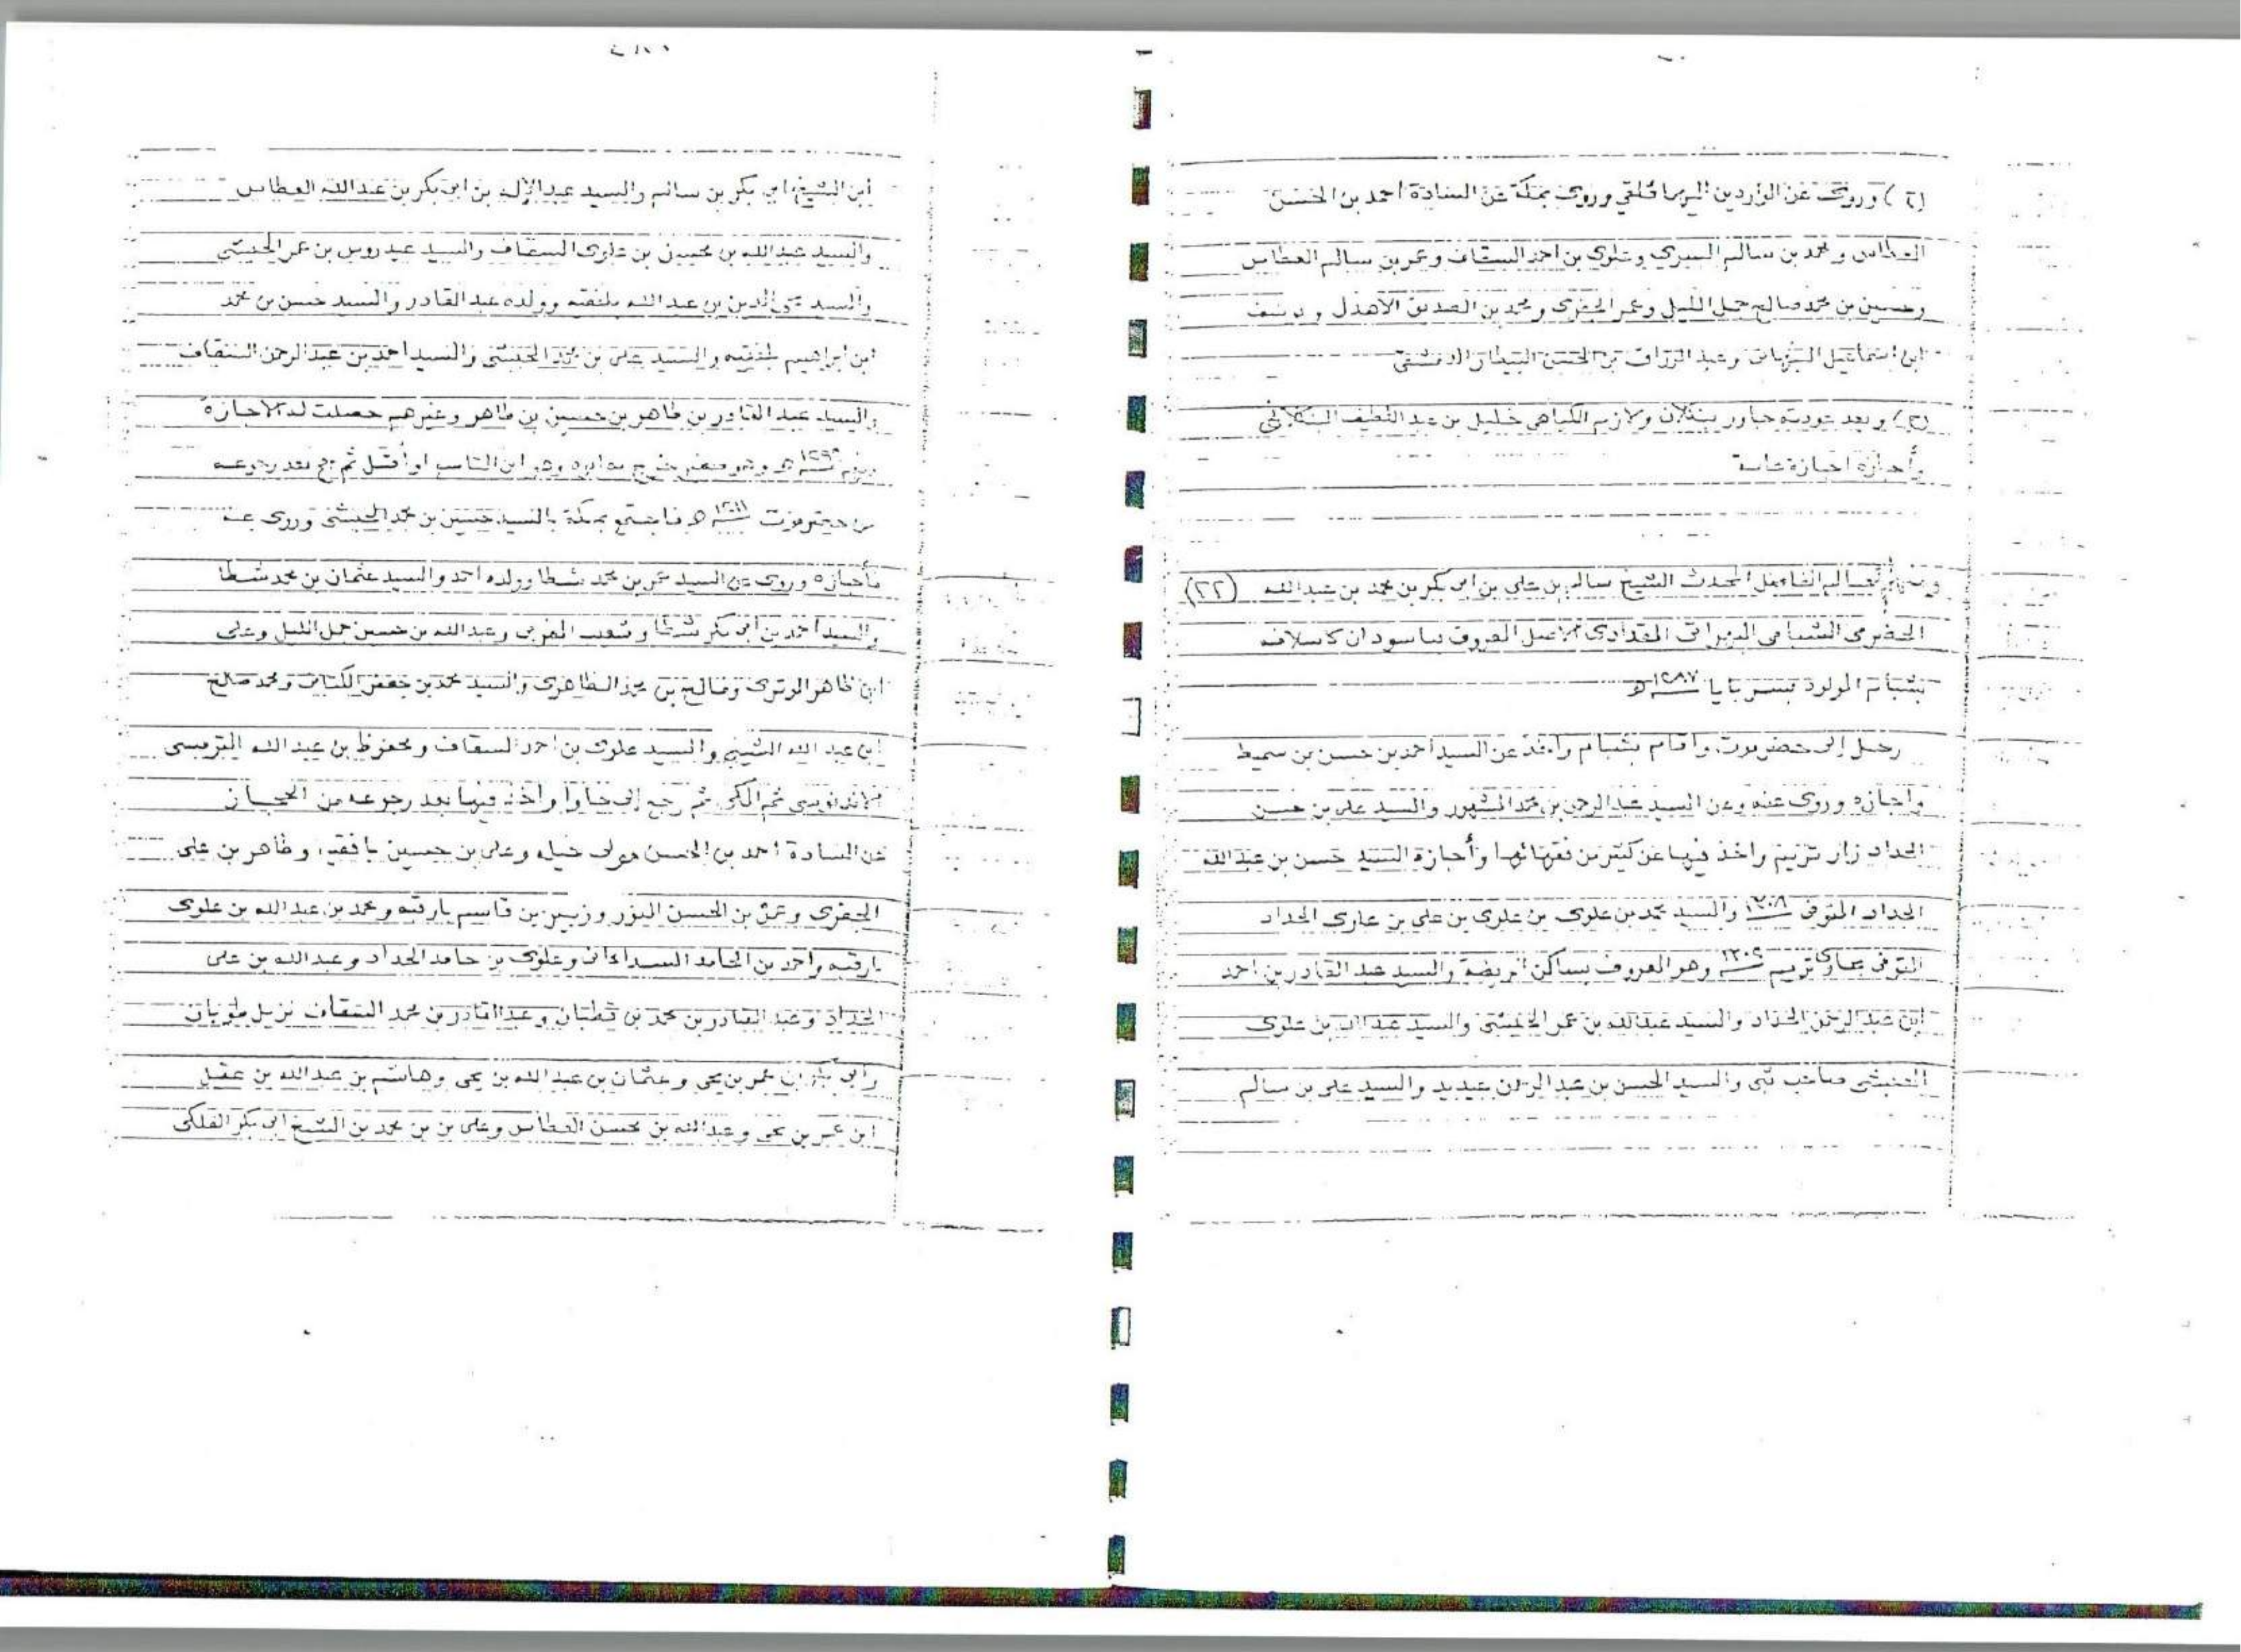 وروى عن الواردين اليها وروى بمكة عن السادة احمد بن الحسن
العطاس ومحمد بن سالم السري وعلوى بن احمد السقاف وعمر بن سالم العطاس
وحسين بن محمد صالح جمل الليل وعمر الجفرى ومحمد بن الصديق الأهدل
ابن اسماعيل النبهانى وعبد الرزاق بن الحسن البيطار الدمشقى
(ج) وبعد عودته جاور ببنكلان ولازم الكياهى خليل بن عبد اللطيف البنكلانى
وأجازه اجازة عامة
الفاضل المحدث الشيخ سالم بن على بن ابى بكر بن محمد بن عبد الله (٢٢)
الحضرمى الشبامى المقدادى الاصل المعروف بباسودان كاسلافه
بشبام المولود بسربايا ١٢٨٧ ه
رحل إلى حضرموت واقام بشبام واخذ عن السيد احمد بن حسن بن سميط
واجازه وروى عنه وعن السيد عبد الرحمن بن محمد المشهور والسيد على بن حسن
الحداد زار تريم واخذ فيها عن كثير من فقهائها وأجازه السيد حسن بن عبد الله
الحداد المتوفى والسيد محمد بن علوى بن علوى بن على بن علوى الحداد
المتوفى تريم وهو المعروف بساكن والسيد عبد القادر بن احمد
ابن عبد الرحمن الحداد والسيد عبد الله بن عمر والسيد عبد الله بن علوى
الحبشى صاحب ثبى والسيد الحسن بن عبد الرحمن عيديد والسيد على بن سالم
ابن الشيخ ابى بكر بن سالم والسيد عبد الإله بن ابى بكر بن عبد الله العطاس
والسيد عبد الله بن محسن بن علوى السقاف والسيد عيدروس بن عمر الحبشى
والسيد بن عبد الله بلفقيه وولده عبد القادر والسيد حسن بن محمد
ابن ابراهيم بلفقيه والسيد على بن محمد الحبشى والسيد احمد بن عبد الرحمن السقاف
والسيد عبد القادر بن طاهر بن حسين بن طاهر وغيرهم حصلت له الاجازة
وهو صغير او أقل ثم حج بعد رجوعه
من حضرموت فاجتمع بمكة بالسيد حسين بن محمد الحبشى وروى عنه
وأجازه وروى عن السيد عمر بن محمد شطا وولده احمد والسيد عثمان بن محمد شطا
والسيد احمد بن أبى بكر شطا وشعيب المغربى وعبد الله بن حسين جمل الليل وعلى
ابن ظاهر الوترى وفالح بن محمد الظاهرى والسيد محمد بن جعفر الكتانى ومحمد صالح
ابن عبد الله والسيد علوى بن احمد السقاف ومحفوظ بن عبد الله الترمسى
ثم المكى ثم رجع إلى جاوا واخذ فيها بعد رجوعه من الحجاز
عن السادة احمد بن الحسن مولى خيله وعلى بن حسين بافقيه وطاهر بن على
الجفرى وعمر بن الحسن وزبير بن قاسم بارقبه ومحمد بن عبد الله بن علوى
بارقبه واحمد بن الحامد وعلوى بن حامد الحداد وعبد الله بن على
الحداد وعبد القادر بن محمد بن قطبان وعبد القادر بن محمد السقاف نزيل طوبان
بن عمر بن يحى وعثمان بن عبد الله بن يحى وهاشم بن عبد الله بن عقيل
ابن عمر بن يحى وعبد الله بن محسن العطاس وعلى بن بن محمد بن الشيخ ابى بكر